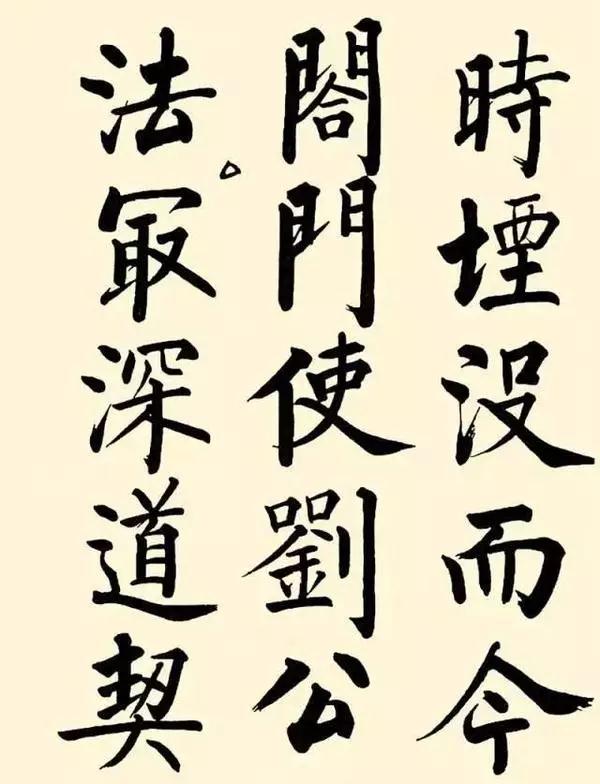 時堙没而今
閤門使劉公
法冣深道契